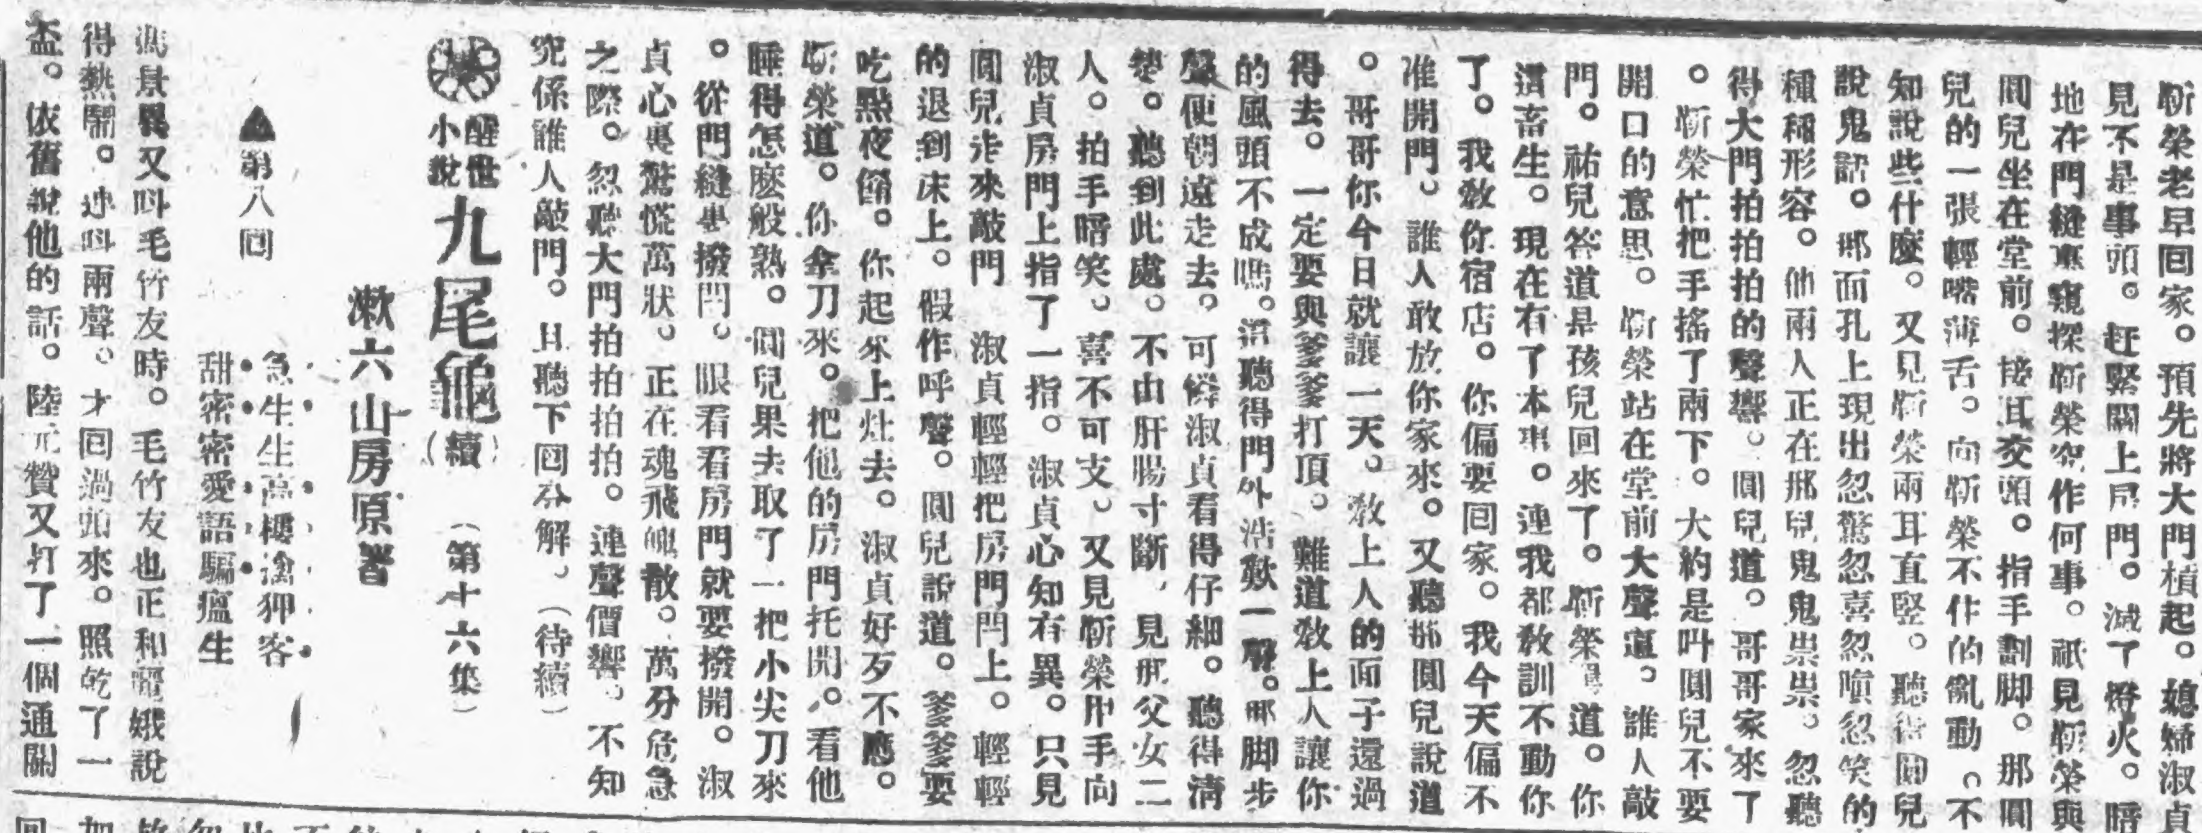 靳榮老早回家。預先將大門槓起。媳婦淑貞
見不是事頭。赶緊關上房門。滅了燈火。暗
地在門縫裏窺探靳榮究作何事。祇見靳榮與
圓兒坐在堂前。接耳交頭。指手劃脚。那圓
兒的一張輕嘴薄舌。向靳榮不住的亂動。不
知說些什麼。又見靳榮兩耳直竪。聽得圓兒
說鬼話。那面孔上現出忽驚忽喜忽嗔忽笑的
種種形容。他兩人正在那兒鬼鬼祟祟。忽聽
得大門拍拍拍的聲響。圓兒道。哥哥家來了
。靳榮忙把手搖了兩下。大約是叫圓兒不要
開口的意思。靳榮站在堂前大聲道。誰人敲
門。祐兒答道是孩兒回來了。靳榮道。你
這畜生。現在有了本事。連我都教訓不動你
了。我教你宿店。你偏要回家。我今天偏不
准開門。誰人敢放你家來。又聽圓兒說道
。哥哥你今日就讓一天。教上人的面子還過
得去。一定要與爹爹打頂。難道教上人讓你
的風頭不成嗎。祇聽得門外浩歎一聲。那脚步
聲便朝遠走去。可憐淑貞看得仔細。聽得清
楚。聽到此處。不由肝腸寸斷。見那父女二
人。拍手暗笑。喜不可支。又見靳榮用手向
淑貞房門上指了一指。淑貞心知有異。只見
圓兒走來敲門 淑貞輕輕把房門閂上。輕輕
的退到床上。假作呼聲。圓兒說道。爹爹要
吃點夜餚。你起來上灶去。淑貞好歹不應。
靳榮道。你拿刀來。把他的房門托開。看他
睡得怎麽般熟。圓兒果去取了一把小尖刀來
。從門縫裏撥閂。眼看看房門就要撥開。淑
貞心裏驚慌萬狀。正在魂飛魄散。萬分危急
之際。忽聽大門拍拍拍拍。連聲價響。不知
究係誰人敲門。且聽下回分解。(待續)
醒世小說 九尾龜(續) (第十六集)
漱六山房原著
▲第八回 急生生高樓擒狎客
甜密密愛語騙瘟生
景異又叫毛竹友時。毛竹友也正和麗娥說
得熱鬧。連叫兩聲。才回過頭來。照乾了一
盃。依舊說他的話。陸元贊又打了一個通關